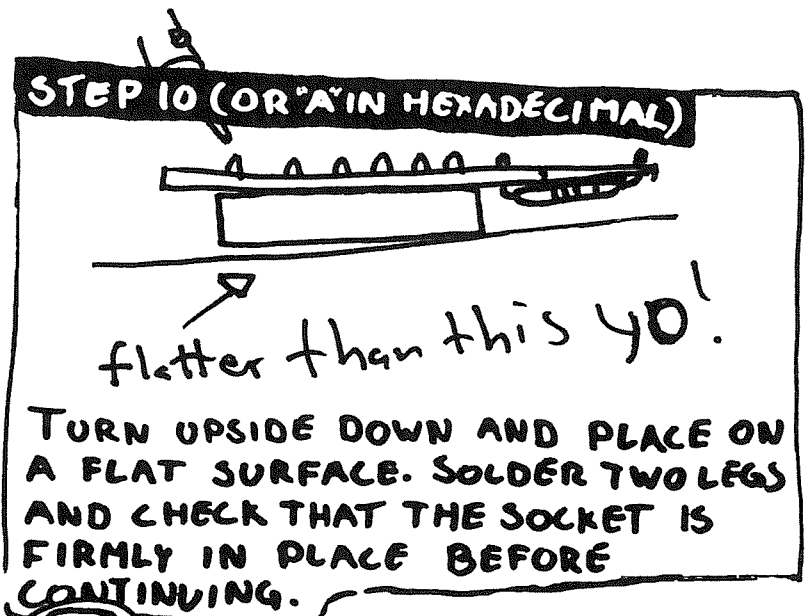 STEP 10 (OR "A" IN HEXADECIMAL)
flatter than this yo!
TURN UPSIDE DOWN AND PLACE ON
A FLAT SURFACE. SOLDER TWO LEGS
AND CHECK THAT THE SOCKET IS
FIRMLY IN PLACE BEFORE
CONTINUING.